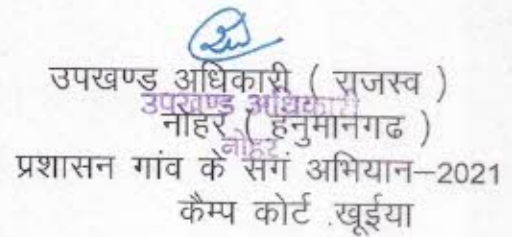 उपखण्ड अधिकारी ( राजस्व )
उपखण्ड अधिकारी
नोहर ( हनुमानगढ )
नोहर
प्रशासन गांव के संगं अभियान–2021
कैम्प कोर्ट .खूईया